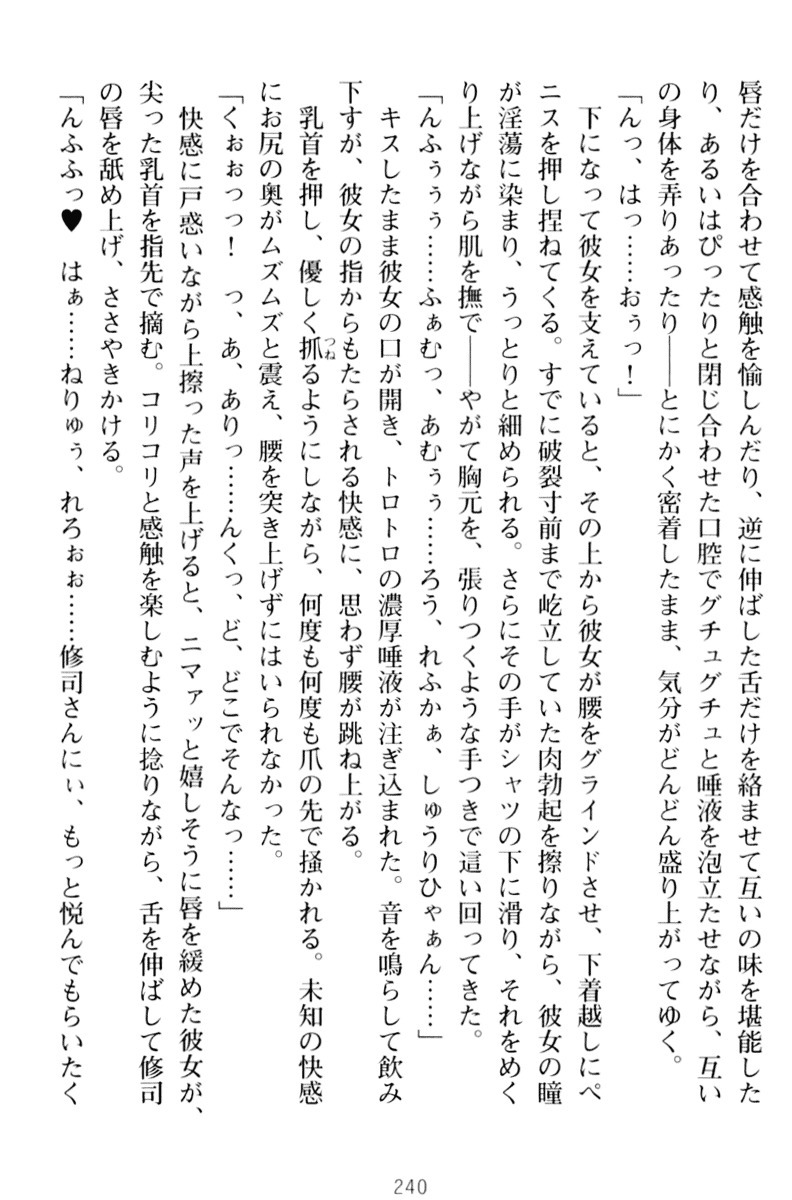 唇だけを合わせて感触を愉しんだり、逆に伸ばした舌だけを絡ませて互いの味を堪能した
り、あるいはぴったりと閉じ合わせた口腔でグチュグチュと唾液を泡立たせながら、互い
の身体を弄りあったり――とにかく密着したまま、気分がどんどん盛り上がってゆく。
「んっ、はっ……おぅっ！」
下になって彼女を支えていると、その上から彼女が腰をグラインドさせ、下着越しにペ
ニスを押し捏ねてくる。すでに破裂寸前まで屹立していた肉勃起を擦りながら、彼女の瞳
が淫蕩に染まり、うっとりと細められる。さらにその手がシャツの下に滑り、それをめく
り上げながら肌を撫で――やがて胸元を、張りつくような手つきで這い回ってきた。
「んふぅぅぅ……ふぁむっ、あむぅぅ……ろう、れふかぁ、しゅうりひゃぁん……」
キスしたまま彼女の口が開き、トロトロの濃厚唾液が注ぎ込まれた。音を鳴らして飲み
下すが、彼女の指からもたらされる快感に、思わず腰が跳ね上がる。
乳首を押し、優しく抓るようにしながら、何度も何度も爪の先で掻かれる。未知の快感
つね
にお尻の奥がムズムズと震え、腰を突き上げずにはいられなかった。
「くぉぉっっ！　っ、あ、ありっ……んくっ、ど、どこでそんなっ……」
快感に戸惑いながら上擦った声を上げると、ニマァッと嬉しそうに唇を緩めた彼女が、
尖った乳首を指先で摘む。コリコリと感触を楽しむように捻りながら、舌を伸ばして修司
の唇を舐め上げ、ささやきかける。
「んふふっ♥　はぁ……ねりゅぅ、れろぉぉ……修司さんにぃ、もっと悦んでもらいたく
240